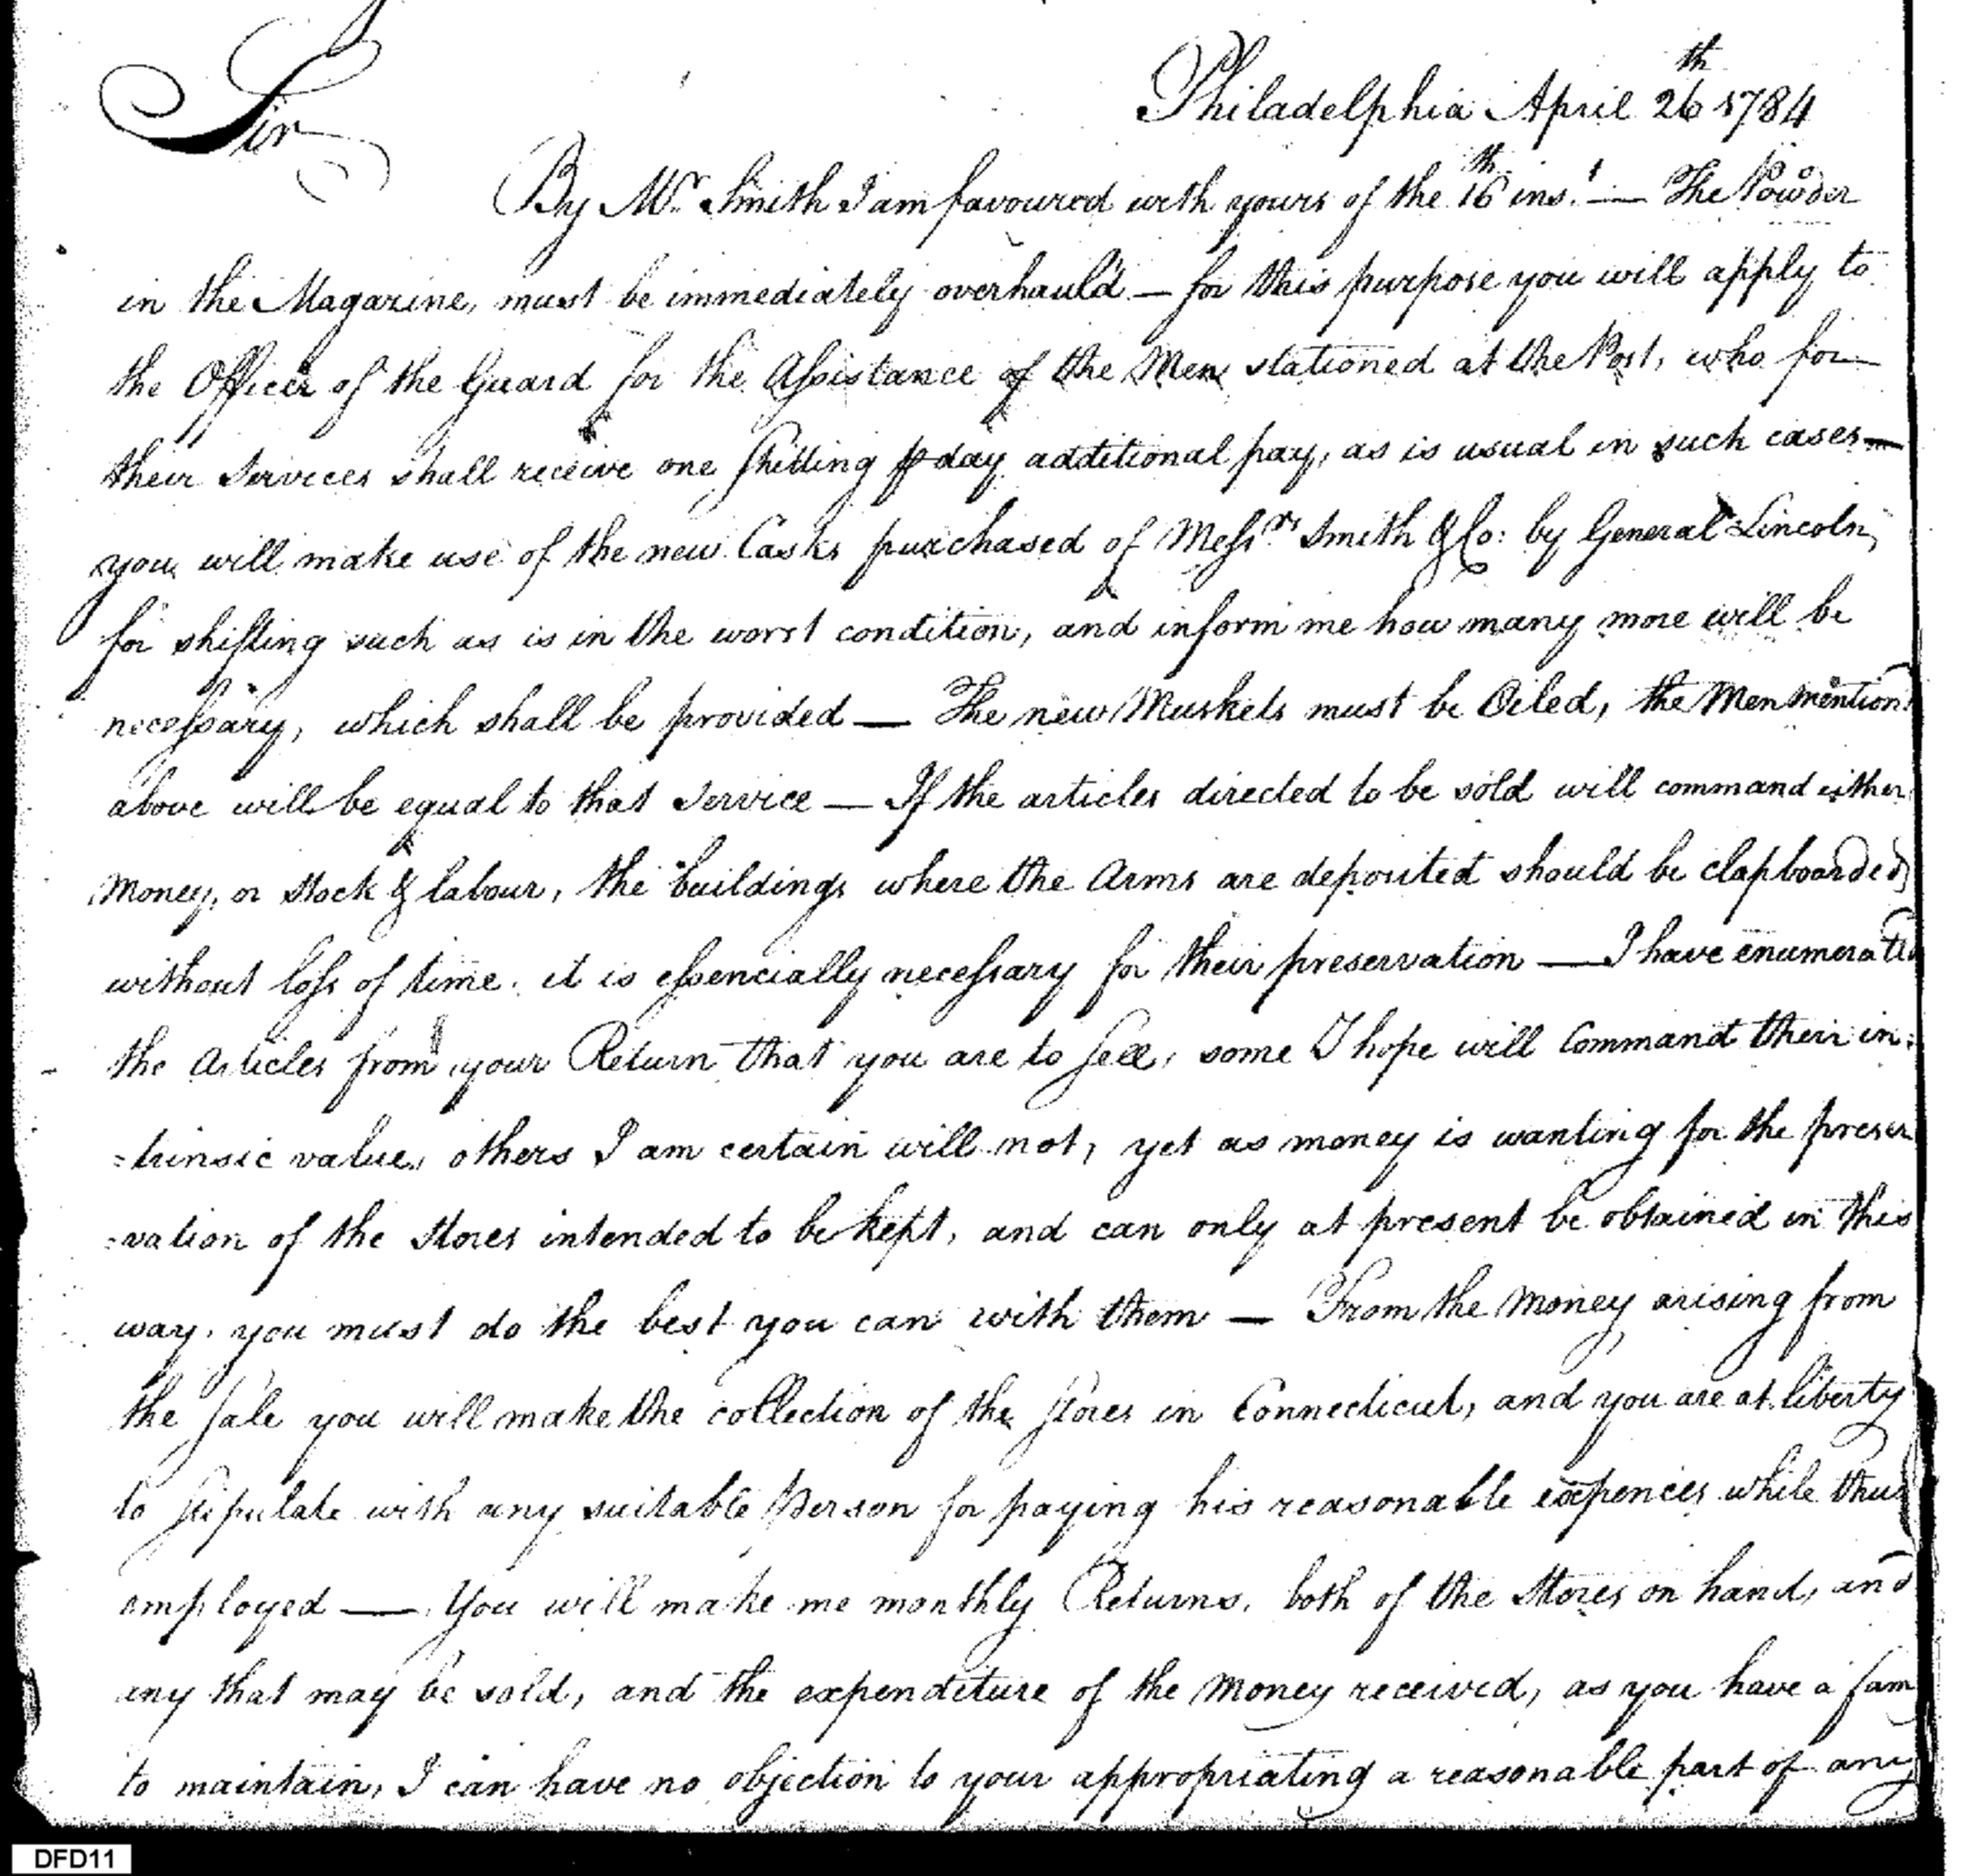 Philadelphia April 26th 1784
Sir
By Mr. Smith I am favoured with yours of the 16th inst. — The Powder
in the Magazine, must be immediately overhauld — for this purpose you will apply to
the Officer of the Guard for the Assistance of the Men stationed at the Post, who for
their Services shall receive one shilling ⅌ day additional pay, as is usual in such cases —
you will make use of the new Casks purchased of Messrs. Smith & Co: by General Lincoln,
for shifting such as is in the worst condition, and inform me how many more will be
necessary, which shall be provided — The new Muskets must be Oiled, the Men mention
above will be equal to that Service — If the articles directed to be sold will command either
Money, or Stock & labour, the buildings where the Arms are deposited should be clapboarded
without loss of time. it is essencially necessary for their preservation — I have enumerated
the Articles from your Return that you are to sell, some I hope will Command their in=
=trinsic value, others I am certain will not, yet as money is wanting for the preser
=vation of the Stores intended to be kept, and can only at present be obtained in this
way. you must do the best you can with them — From the Money arising from
the sale you will make the collection of the stores in Connecticut, and you are at liberty
to stipulate with any suitable Person for paying his reasonable expences while thus
employed — You will make me monthly Returns, both of the Stores on hand, and
any that may be sold, and the expenditure of the Money received, as you have a fam
to maintain, I can have no objection to your appropriating a reasonable part of any
DFD11